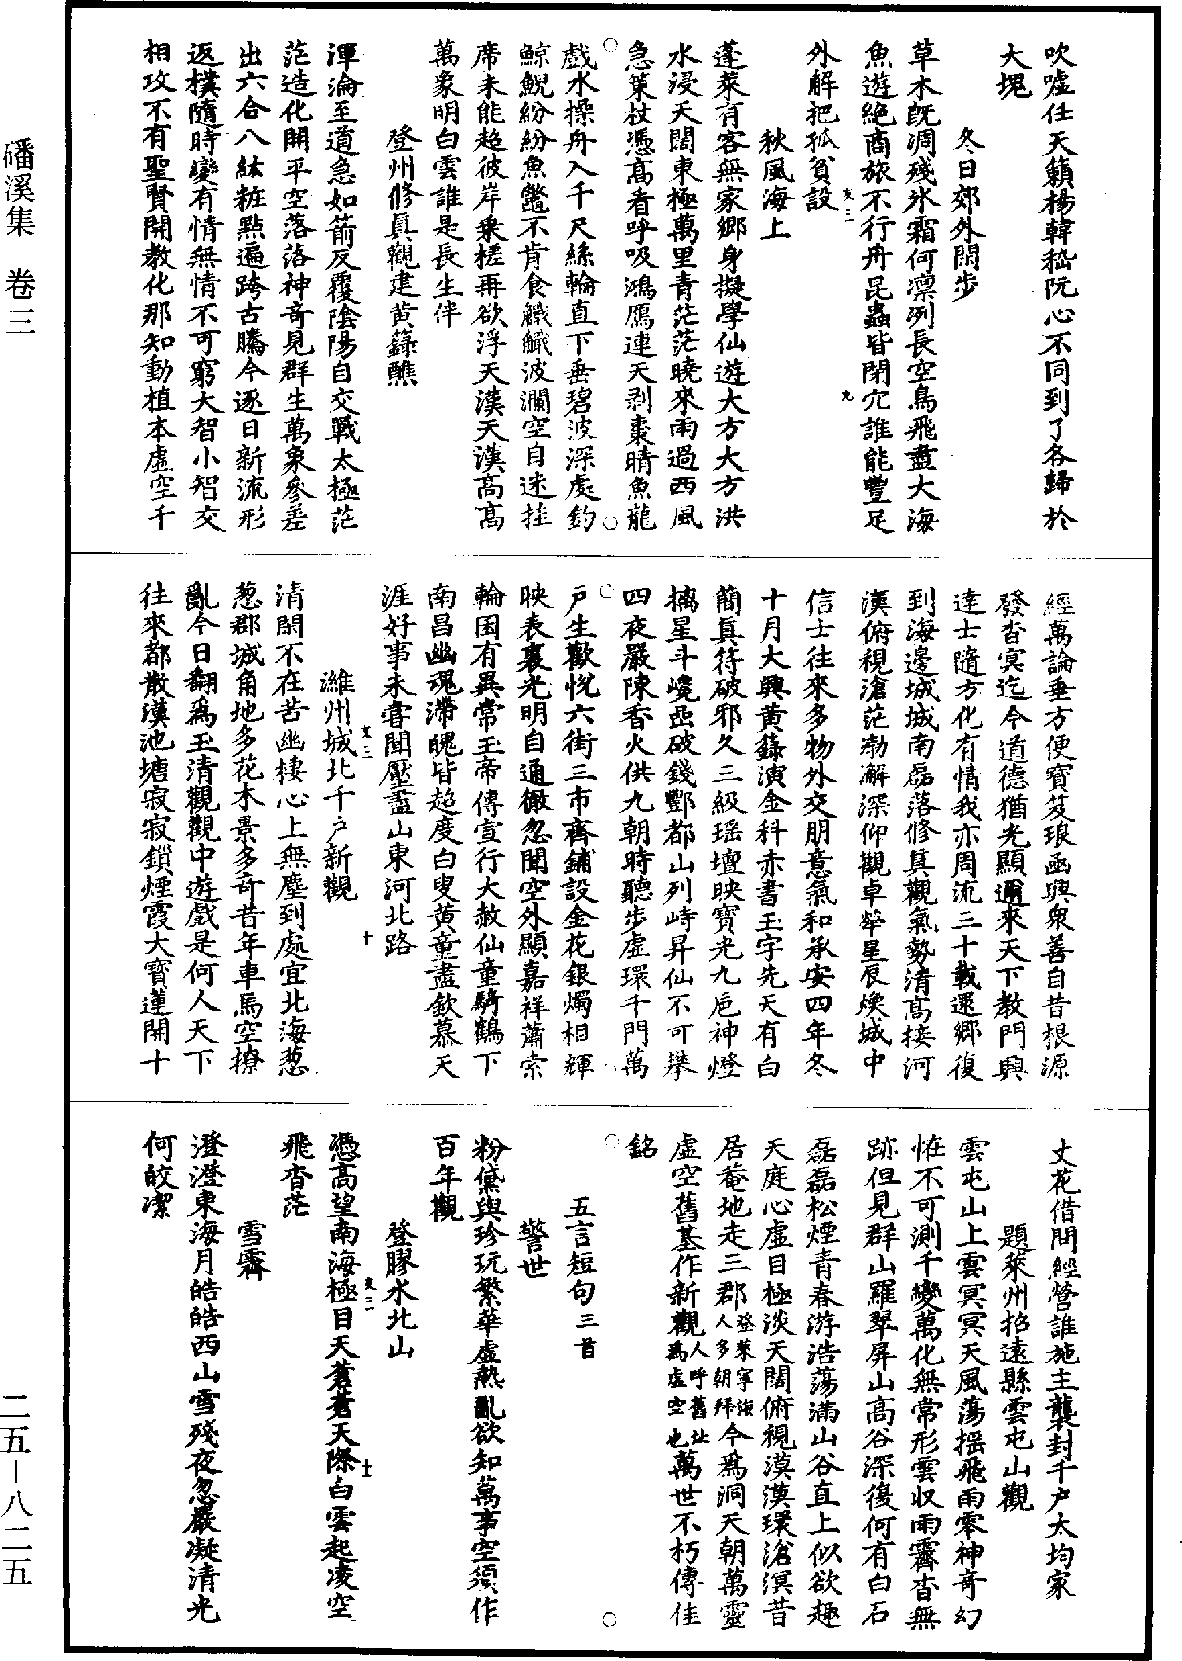 吹噓任天籟楊韓嵇阮心不同到了各歸於
大塊
冬日郊外閑步
草木旣凋殘氷霜何凛冽長空鳥飛盡大海
魚遊絶商旅不行舟昆蟲皆閉穴誰能豐足
外解把孤貧設
秋風海上
蓬萊有客無家鄉身擬學仙遊大方大方洪
水浸天闊東極萬里青茫茫曉來雨過西風
急策杖憑高者呼吸鴻鴈連天剥棗晴魚龍
戲水操舟入千尺絲輪直下垂碧波深處釣
鯨鯢紛紛魚鼈不肯食巇巇波瀾空自迷挂
席未能超彼岸乗槎再欲浮天漢天漢高高
萬象明白雲誰是長生伴
登州修真觀建黄籙醮
渾淪至道急如箭反覆陰陽自交戰太極茫
茫造化開平空落落神竒見群生萬象參差
出六合八紘粧點遍跨古騰今逐日新流形
返樸隨時變有情無情不可窮大智小智交
相攻不有聖賢開教化那知動植本虚空千
經萬論垂方便寳笈琅函與衆善自昔根源
發杳冥迄今道德猶光顯邇來天下教門興
達士隨方化有情我亦周流三十載還鄉復
到海邊城城南磊落修真觀氣勢清高接河
漢俯視滄茫渤澥深仰觀卓犖星辰煥城中
信士往來多物外交朋意氣和承安四年冬
十月大興黄籙演金科赤書玉字先天有白
簡真符破邪久三級瑶壇映寳光九巵神燈
摛星斗嶢㟧破錢酆都山列峙昇仙不可攀
四夜嚴陳香火供九朝時聽步虚環千門萬
戸生歡悅六街三市齊鋪設金花銀燭相輝
映表裏光明自通徹忽聞空外顯嘉祥蕭索
輪囷有異常玉帝傳宣行大赦仙童騎鶴下
南昌幽魂滯魄皆超度白叟黄童盡欽慕天
涯好事未甞聞壓盡山東河北路
濰州城北千户新觀
清閑不在苦幽棲心上無塵到處宜北海葱
葱郡城角地多花木景多竒昔年車馬空撩
亂今日翻爲玉清觀觀中遊戲是何人天下
往來都散漢池塘寂寂鎖煙霞大寳蓮開十
丈花借問經營誰施主襲封千户大均家
題萊州招遠縣雲屯山觀
雲屯山上雲冥冥天風蕩揺飛雨零神竒幻
恠不可測千變萬化無常形雲収雨霽杳無
跡但見群山羅翠屏山高谷深復何有白石
磊磊松煙青春游浩蕩滿山谷直上似欲趨
天庭心虚目極淡天闊俯視漠漠環滄溟昔
居菴地走三郡登萊寧海人多朝拜今爲洞天朝萬靈
虚空舊基作新觀人呼舊址爲虚空也萬世不朽傳佳
銘
五言短句三首
警世
粉黛與珍玩繁華虚熱亂欲知萬事空須作
百年觀
登膠水北山
憑高望南海極目天蒼蒼天際白雲起凌空
飛杳茫
雪霽
澄澄東海月皓皓西山雪殘夜忽嚴凝清光
何皎潔
磻溪集 卷三
二五－八二五